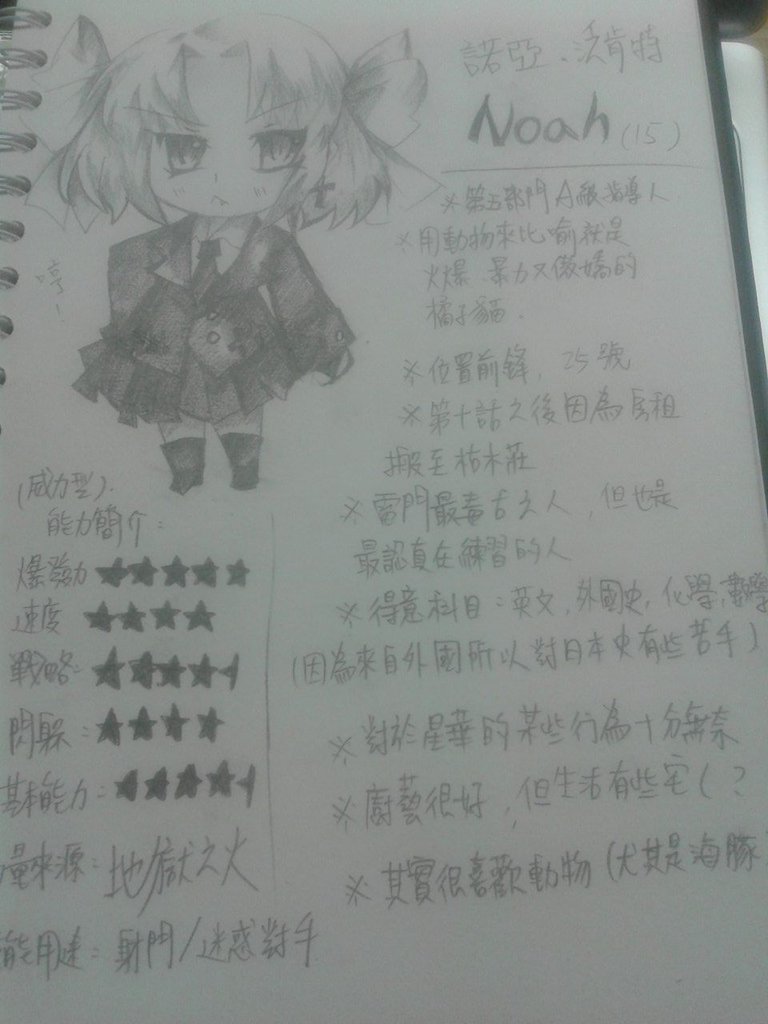 諾亞．沃肯特
Noah (15)
※第五部門A級指導人
※用動物來比喻就是
火爆、暴力又傲嬌的
橘子貓。
※位置前鋒，25號
※第十話之後因為房租
搬至枯木莊
※雷門最毒舌之人，但也是
最認真在練習的人
※得意科目：英文，外國史，化學，數學
(因為來自外國所以對日本史有些苦手)
※對於星華的某些行為十分無奈
※廚藝很好，但生活有些宅(？
※其實很喜歡動物(尤其是海豚)
哼！
(威力型)
能力簡介：
爆發力★★★★★
速度 ★★★★
戰略：★★★★
閃躲：★★★★
基本能力：★★★★
量來源：地獄之火
能用途：射門/迷惑對手